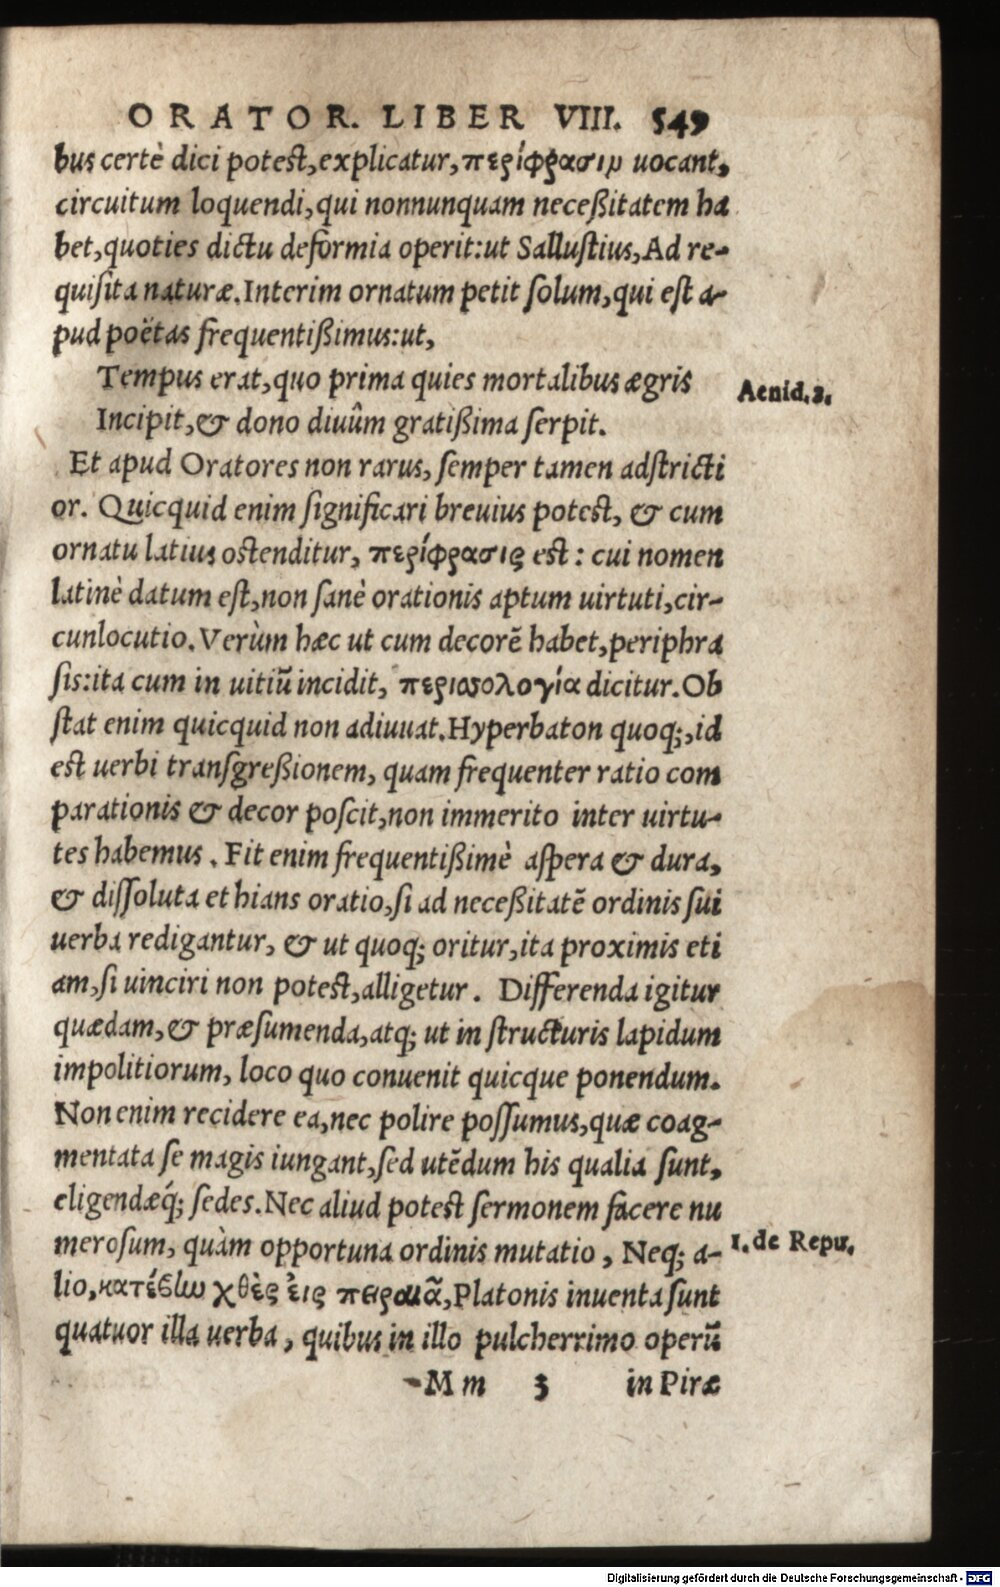 ORATOR. LIBER VIII. 549
bus certè dici potest, explicatur, περίφρασιν uocant,
circuitum loquendi, qui nonnunquam neceßitatem ha
bet, quoties dictu deformia operit: ut Sallustius, Ad re-
quisita naturæ. Interim ornatum petit solum, qui est a-
pud poëtas frequentißimus: ut,
Tempus erat, quo prima quies mortalibus ægris
Aenid. 2.
Incipit, & dono diuûm gratißima serpit.
Et apud Oratores non rarus, semper tamen adstricti
or. Quicquid enim significari breuius potest, & cum
ornatu latius ostenditur, περίφρασις est: cui nomen
latinè datum est, non sanè orationis aptum uirtuti, cir-
cunlocutio. Verùm hæc ut cum decorē habet, periphra
sis: ita cum in uitiū incidit, περισσολογία dicitur. Ob
stat enim quicquid non adiuuat. Hyperbaton quoq;, id
est uerbi transgreßionem, quam frequenter ratio com
parationis & decor poscit, non immerito inter uirtu-
tes habemus. Fit enim frequentißimè aspera & dura,
& dissoluta et hians oratio, si ad neceßitatē ordinis sui
uerba redigantur, & ut quoq; oritur, ita proximis eti
am, si uinciri non potest, alligetur. Differenda igitur
quædam, & præsumenda, atq; ut in structuris lapidum
impolitiorum, loco quo conuenit quicque ponendum.
Non enim recidere ea, nec polire possumus, quæ coag-
mentata se magis iungant, sed utēdum his qualia sunt,
eligendæq́; sedes. Nec aliud potest sermonem facere nu
merosum, quàm opportuna ordinis mutatio, Neq; a-
1. de Repu.
lio, κατέβην χθὲς εἰς πειραιᾶ, Platonis inuenta sunt
quatuor illa uerba, quibus in illo pulcherrimo operū
M m 3 in Piræ
Digitalisierung gefördert durch die Deutsche Forschungsgemeinschaft - DFG